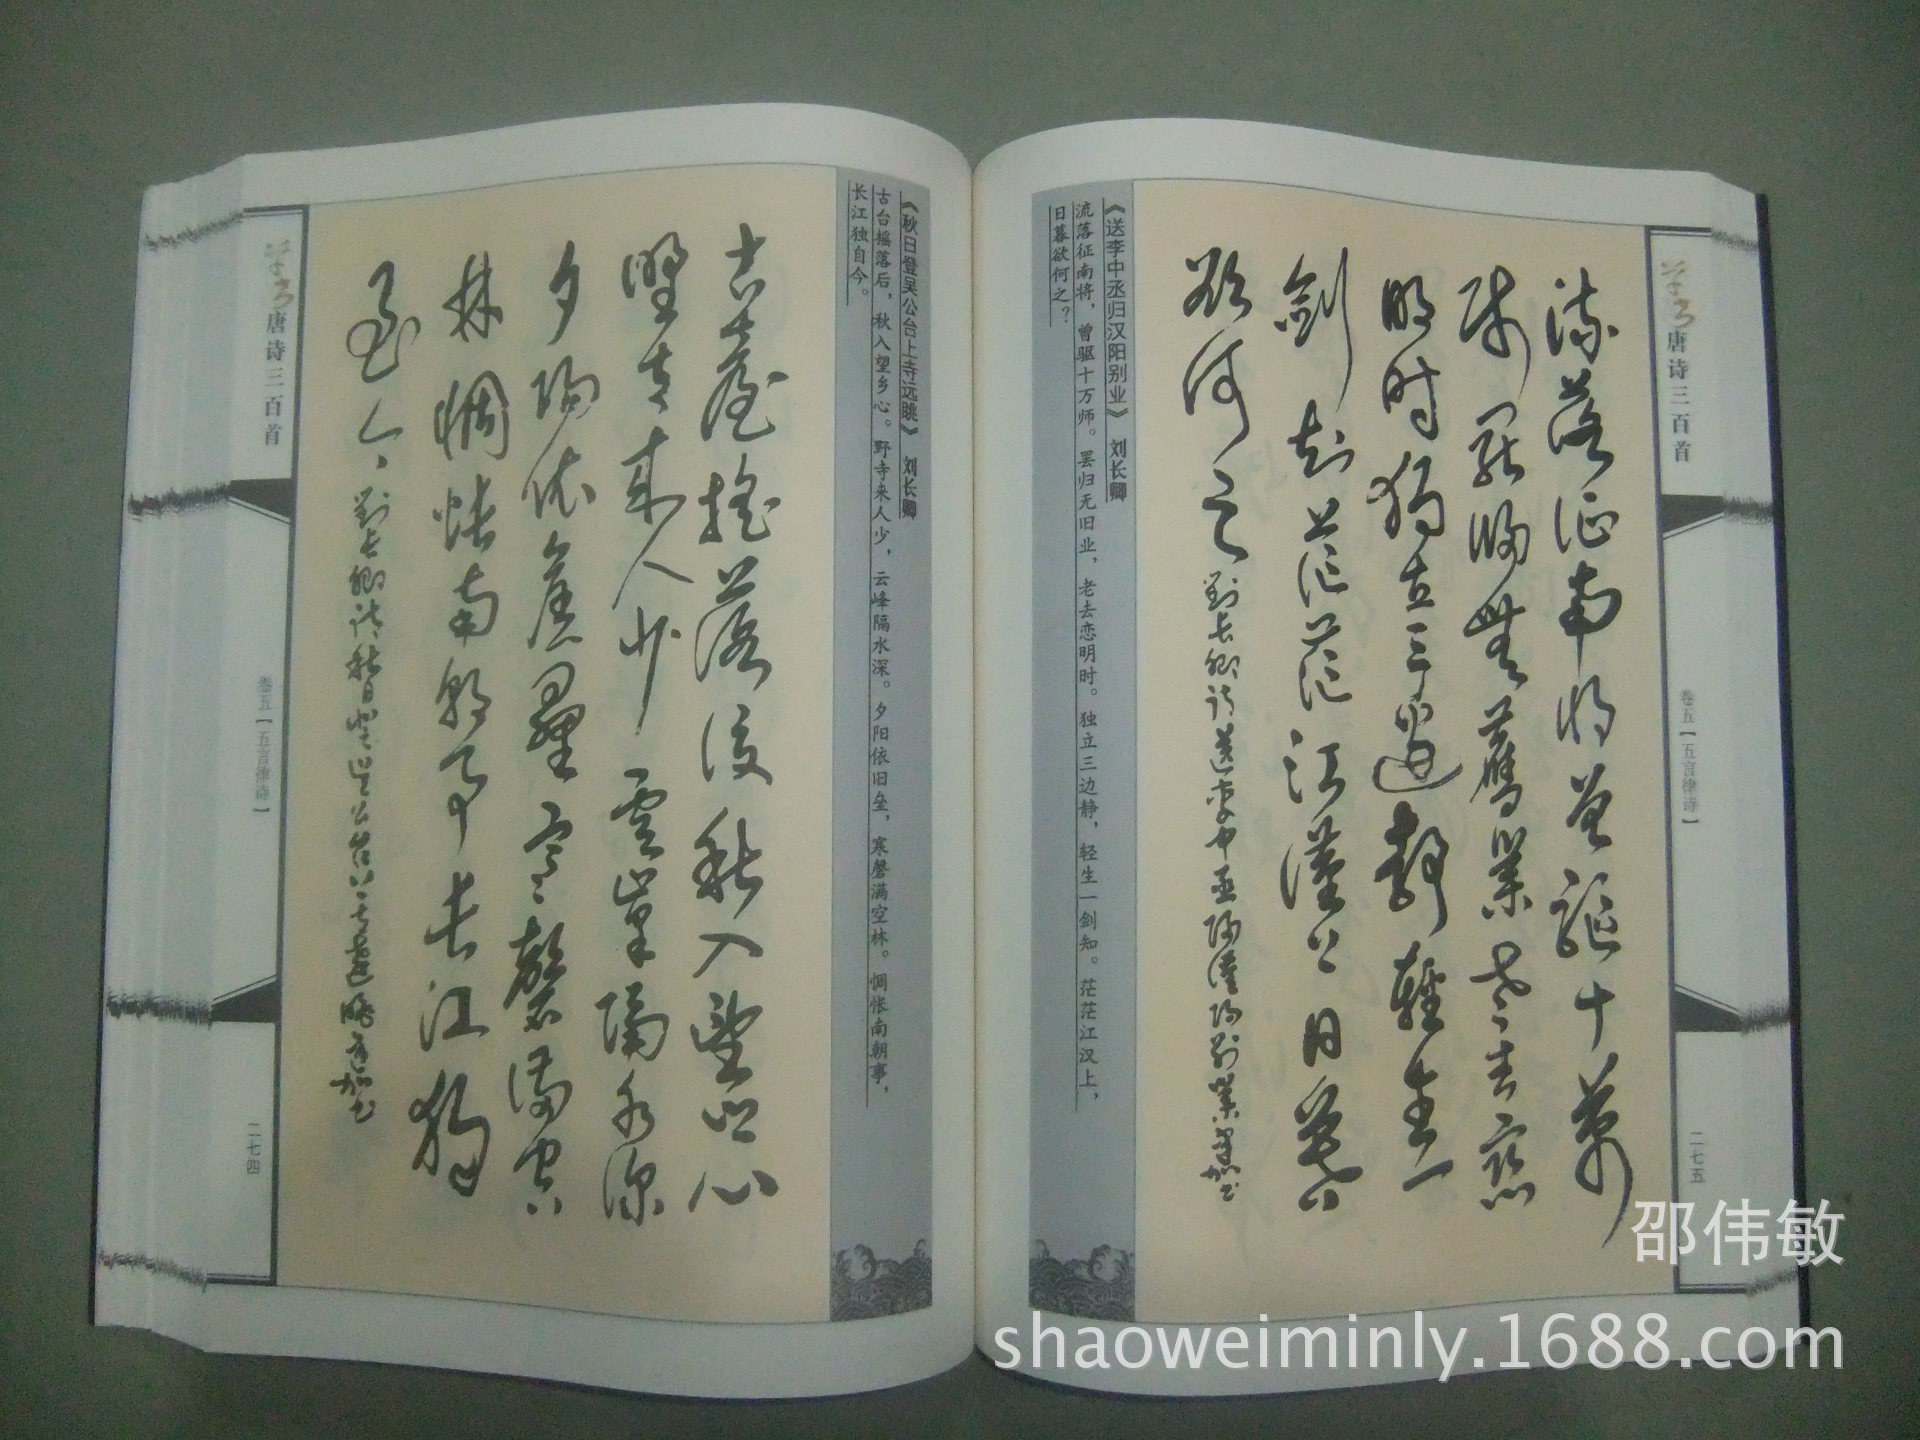 草书唐诗三百首
卷五【五言律诗】
二七四
《秋日登吴公台上寺远眺》 刘长卿
古台摇落后，秋入望乡心。野寺来人少，云峰隔水深。夕阳依旧垒，寒磬满空林。惆怅南朝事，
长江独自今。
古臺摇落後秋入望鄉心
野寺來人少雲峰隔水深
夕陽依舊壘寒磬滿空
林惆悵南朝事長江獨
自今 劉長卿詩秋日登吳公台上寺遠眺
草书唐诗三百首
卷五【五言律诗】
二七五
流落征南將曾驅十萬
師罷歸無舊業老去戀
明時獨立三邊靜輕生一
劍知茫茫江漢上日暮
欲何之 劉長卿詩送李中丞歸漢陽別業
《送李中丞归汉阳别业》 刘长卿
流落征南将，曾驱十万师。罢归无旧业，老去恋明时。独立三边静，轻生一剑知。茫茫江汉上，
日暮欲何之？
邵伟敏
shaoweiminly.1688.com